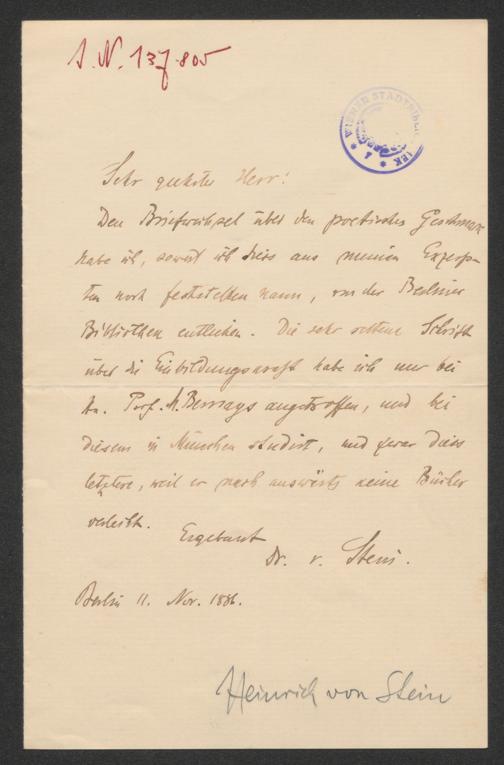 J. N. 137.805
WIENER STADTBIBLIOTHEK
Sehr geehrter Herr!
Den Briefwechsel über den poetischen Geschmack
habe ich, soweit ich dies aus meinen Exzerp-
ten noch feststellen kann, von der Berliner
Bibliothek entliehen. Die sehr seltene Schrift
über die Einbildungskraft habe ich nur bei
Hn. Prof. M. Bernays angetroffen, und bei
diesem in München studirt, und zwar dies
letztere, weil er nach auswärts keine Bücher
verleiht.
Ergebenst
Dr. v. Stein.
Berlin 11. Nov. 1886.
Heinrich von Stein